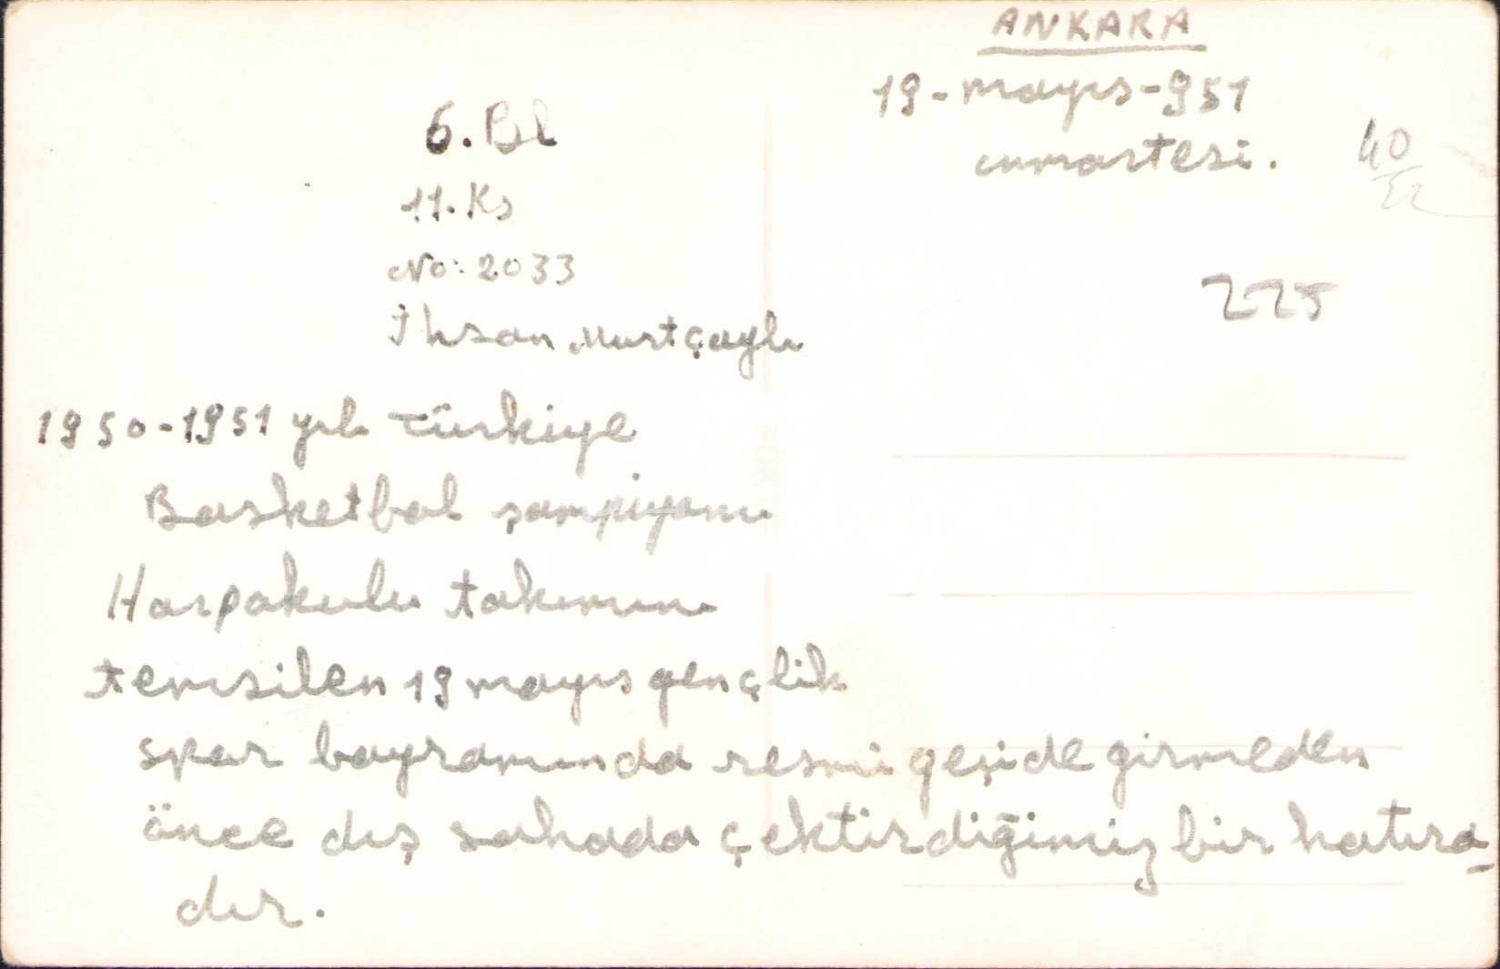 ANKARA
19-mayıs-951
cumartesi.
40
225
6.Bl
11.Ks
No: 2033
İhsan Murtçaylı
1950-1951 yılı Türkiye
Basketbol şampiyonu
Harpokulu takımını
temsilen 19 mayıs gençlik
spor bayramında resmi geçide girmeden
önce dış sahada çektirdiğimiz bir hatıra
dır.